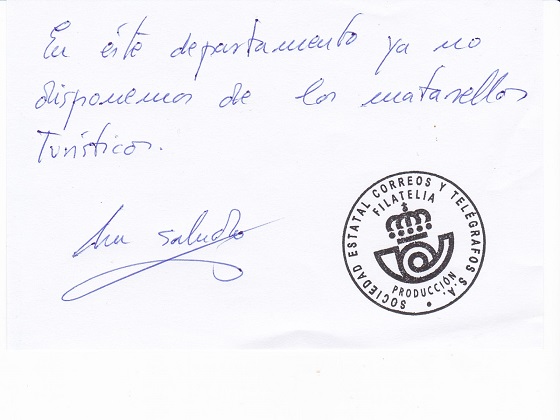 En éste departamento ya no
disponemos de los matasellos
Turísticos.
Un saludo
SOCIEDAD ESTATAL CORREOS Y TELÉGRAFOS S.A.
FILATELIA
PRODUCCIÓN